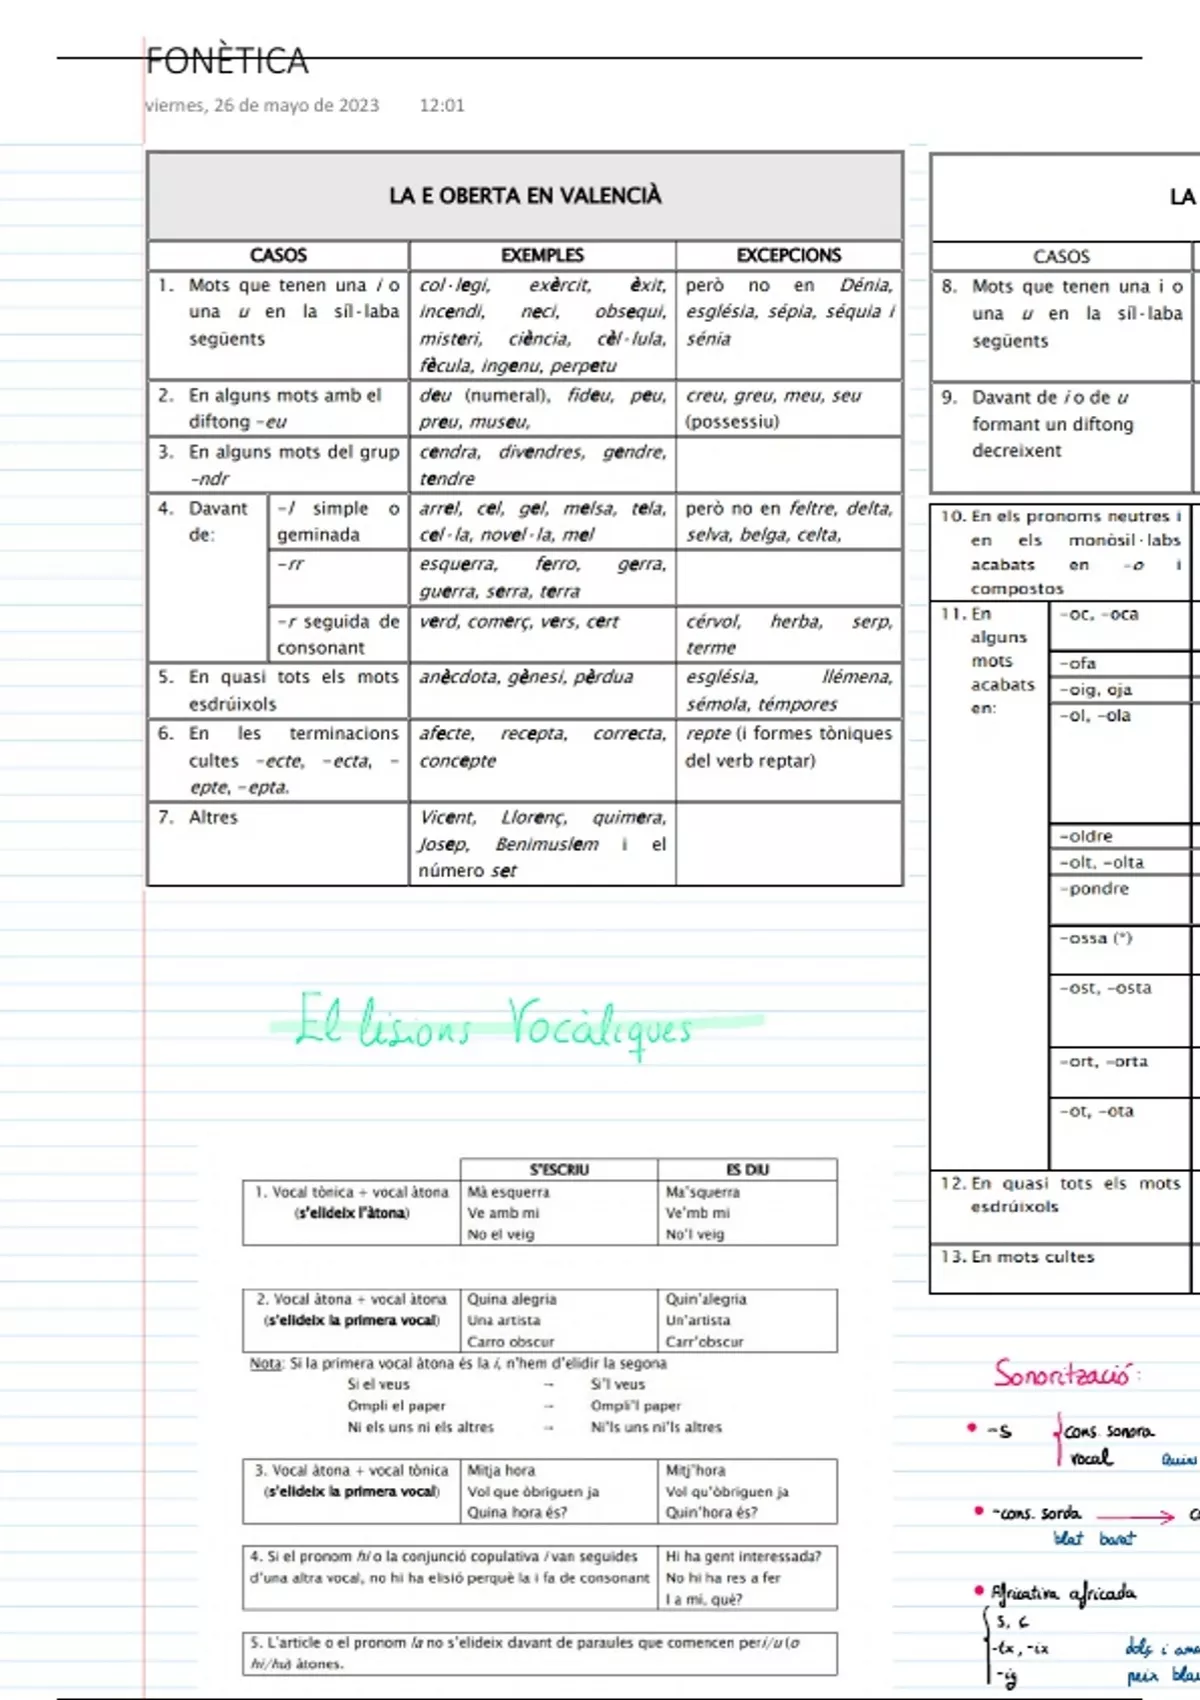 FONÈTICA
viernes, 26 de mayo de 2023 12:01
LA E OBERTA EN VALENCIÀ
CASOS EXEMPLES EXCEPCIONS
1. Mots que tenen una i o una u en la síl·laba següents
col·legi, exèrcit, èxit, incendi, neci, obsequi, misteri, ciència, cèl·lula, fècula, ingenu, perpetu
però no en Dénia, església, sépia, séquia i sénia
2. En alguns mots amb el diftong -eu
deu (numeral), fideu, peu, preu, museu,
creu, greu, meu, seu (possessiu)
3. En alguns mots del grup -ndr
cendra, divendres, gendre, tendre
4. Davant de:
-l simple o geminada
arrel, cel, gel, melsa, tela, cel·la, novel·la, mel
però no en feltre, delta, selva, belga, celta,
-rr
esquerra, ferro, gerra, guerra, serra, terra
-r seguida de consonant
verd, comerç, vers, cert
cérvol, herba, serp, terme
5. En quasi tots els mots esdrúixols
anècdota, gènesi, pèrdua
església, llémena, sémola, témpores
6. En les terminacions cultes -ecte, -ecta, -epte, -epta.
afecte, recepta, correcta, concepte
repte (i formes tòniques del verb reptar)
7. Altres
Vicent, Llorenç, quimera, Josep, Benimuslem i el número set
LA
CASOS
8. Mots que tenen una i o una u en la síl·laba següents
9. Davant de i o de u formant un diftong decreixent
10. En els pronoms neutres i en els monòsil·labs acabats en -o i compostos
11. En alguns mots acabats en:
-oc, -oca
-ofa
-oig, oja
-ol, -ola
-oldre
-olt, -olta
-pondre
-ossa (*)
-ost, -osta
-ort, -orta
-ot, -ota
12. En quasi tots els mots esdrúixols
13. En mots cultes
El lisions Vocàliques
S'ESCRIU ES DIU
1. Vocal tònica + vocal àtona (s'elideix l'àtona)
Mà esquerra Ma'squerra
Ve amb mi Ve'mb mi
No el veig No'l veig
2. Vocal àtona + vocal àtona (s'elideix la primera vocal)
Quina alegria Quin'alegria
Una artista Un'artista
Carro obscur Carr'obscur
Nota: Si la primera vocal àtona és la i, n'hem d'elidir la segona
Si el veus → Si'l veus
Ompli el paper → Ompli'l paper
Ni els uns ni els altres → Ni'ls uns ni'ls altres
3. Vocal àtona + vocal tònica (s'elideix la primera vocal)
Mitja hora Mitj'hora
Vol que òbriguen ja Vol qu'òbriguen ja
Quina hora és? Quin'hora és?
4. Si el pronom hi o la conjunció copulativa i van seguides d'una altra vocal, no hi ha elisió perquè la i fa de consonant
Hi ha gent interessada?
No hi ha res a fer
I a mi, què?
5. L'article o el pronom la no s'elideix davant de paraules que comencen per i/u (o hi/hu) àtones.
Sonorització:
-s cons. sonora
vocal
-cons. sorda →
blat barat
Africativa africada
s, c
-tx, -ix dolç i
-ig peix